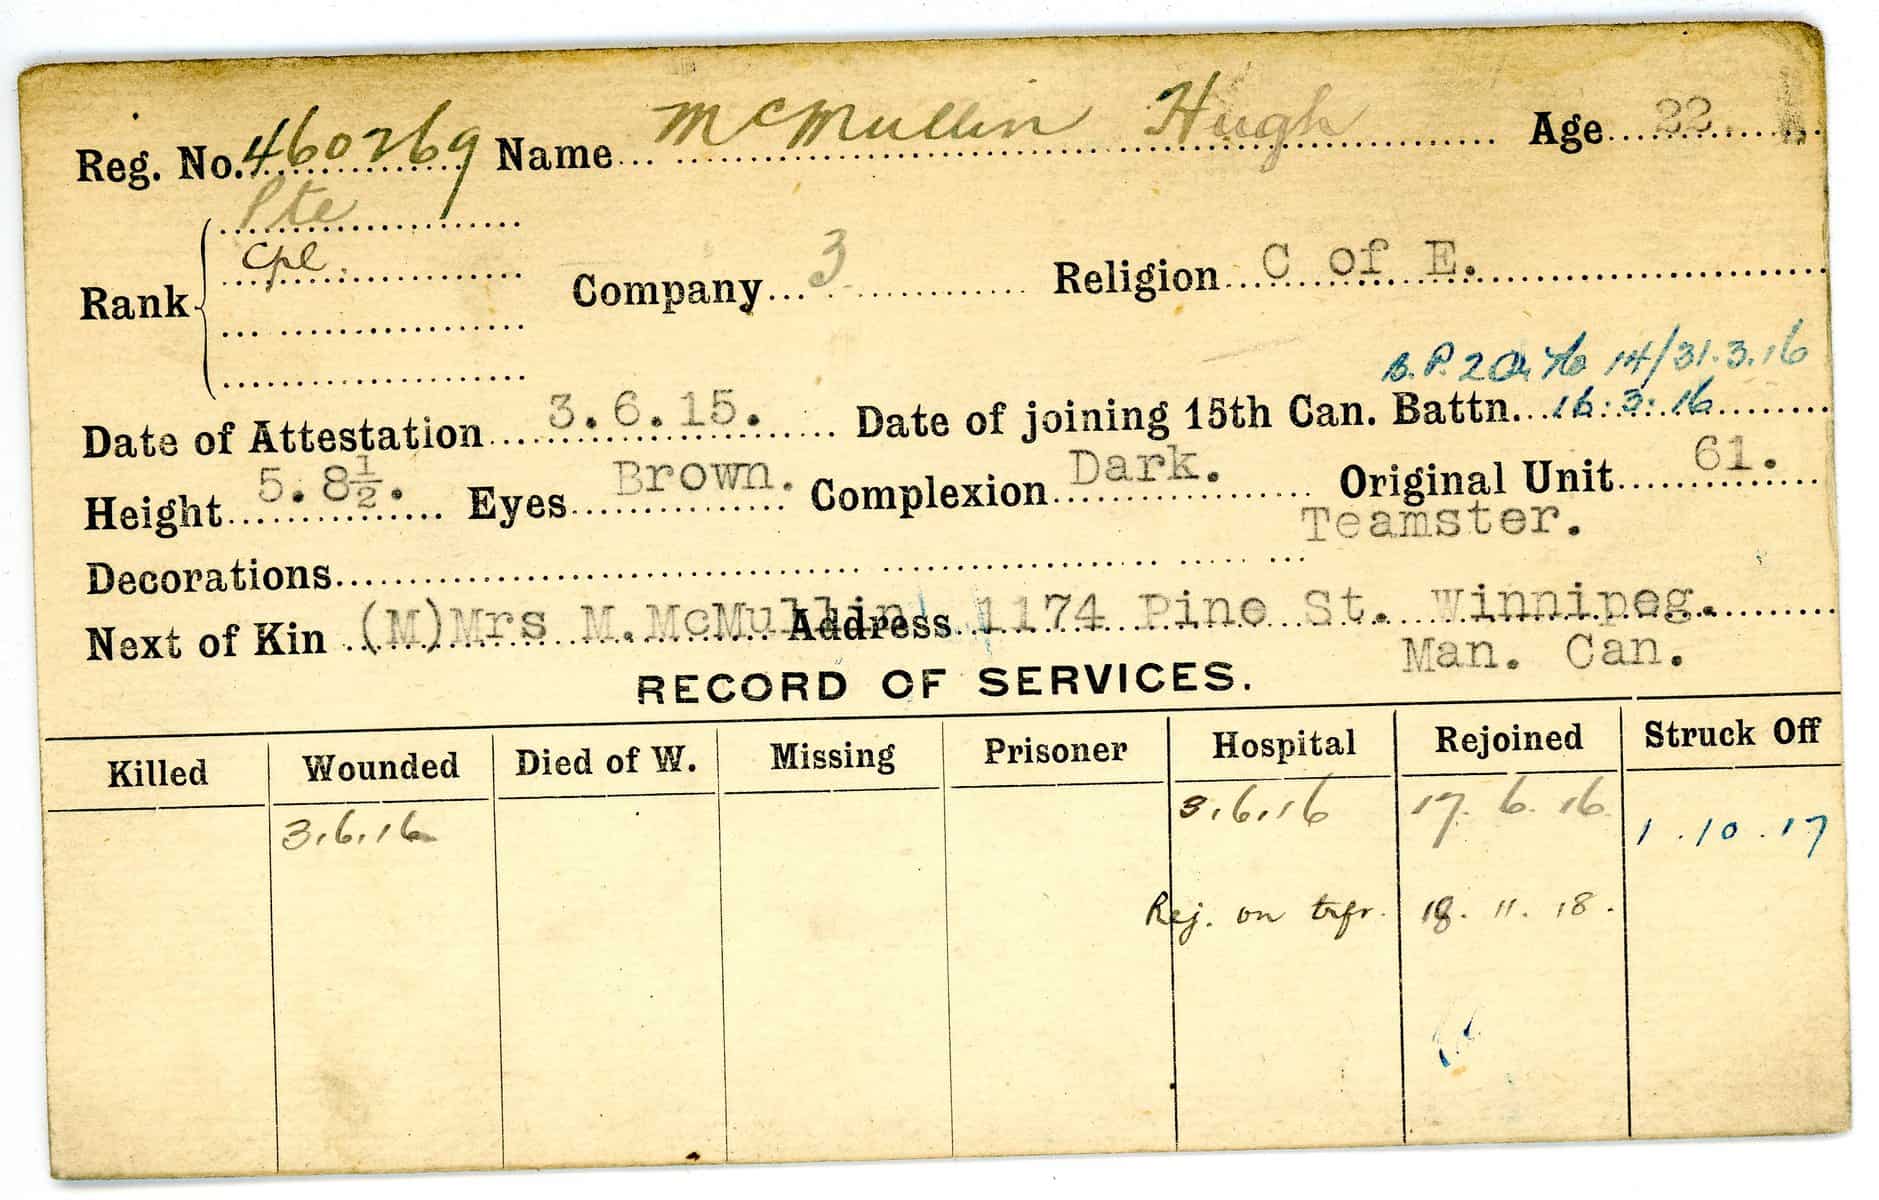 Reg. No. 460269 Name McMullin Hugh Age 22.
Rank Pte
Cpl. Company 3 Religion C of E.
14/31.3.16
Date of Attestation 3.6.15. Date of joining 15th Can. Battn. 16.3.16
Height 5.8½. Eyes Brown. Complexion Dark. Original Unit 61.
Teamster.
Decorations
Next of Kin (M)Mrs M.McMullin Address 1174 Pine St. Winnipeg.
Man. Can.
RECORD OF SERVICES.
Killed Wounded Died of W. Missing Prisoner Hospital Rejoined Struck Off
3.6.16 3.6.16 17.6.16 1.10.17
Rej. on trfr. 18.11.18.